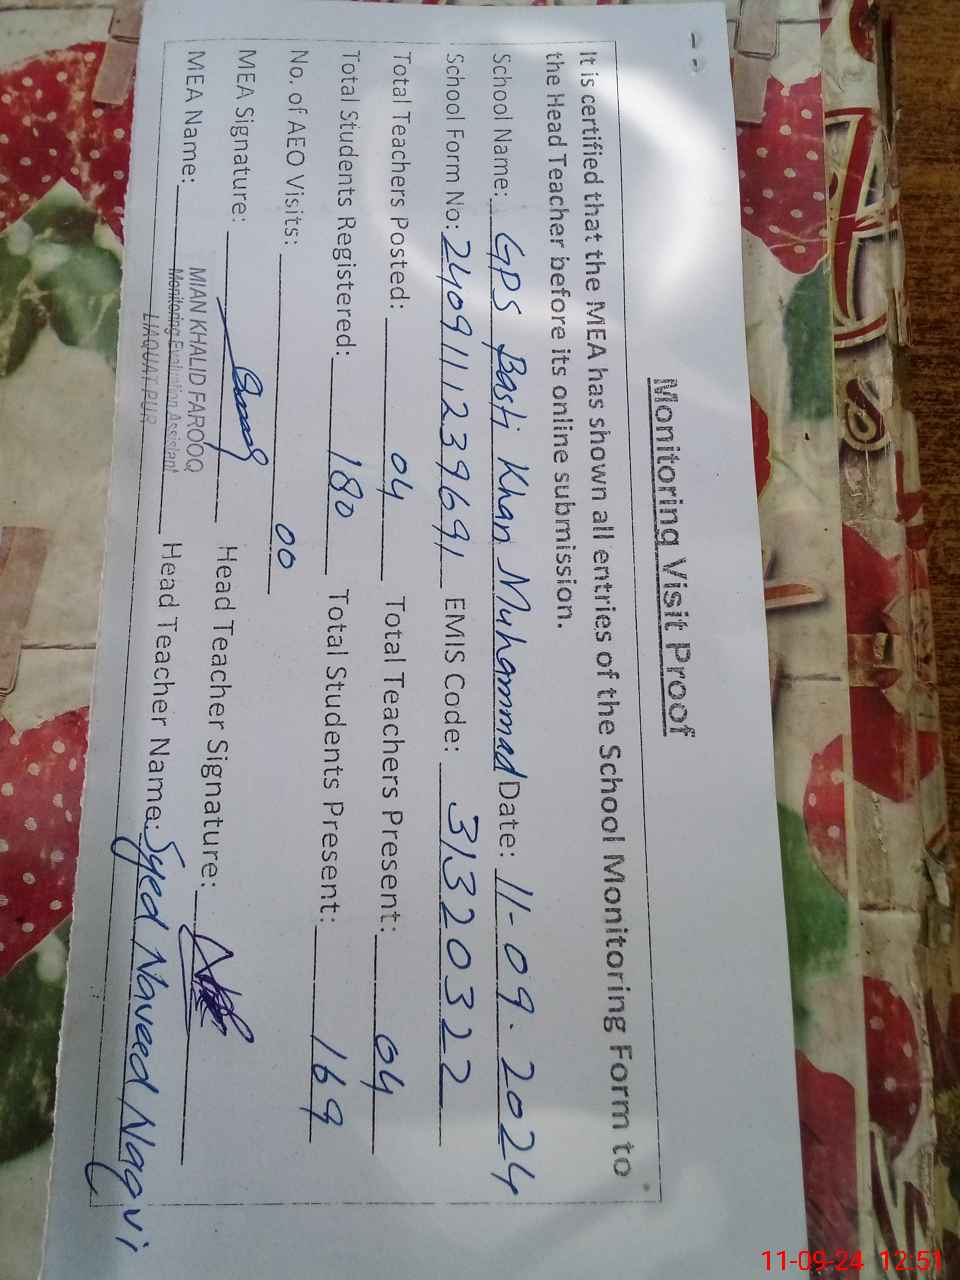 Monitoring Visit Proof
It is certified that the MEA has shown all entries of the School Monitoring Form to
the Head Teacher before its online submission.
School Name: GPS Basti Khan Muhammad Date: 11-09-2024
School Form No: 24091112396491 EMIS Code: 31320322
Total Teachers Posted: 04 Total Teachers Present: 04
Total Students Registered: 180 Total Students Present: 169
No. of AEO Visits: 00
MEA Signature: Head Teacher Signature:
MEA Name: MIAN KHALID FAROOQ Head Teacher Name: Syed Naveed Naqvi
Monitoring Evaluation Assistant
LIAQUAT PUR
11-09-24 12:51